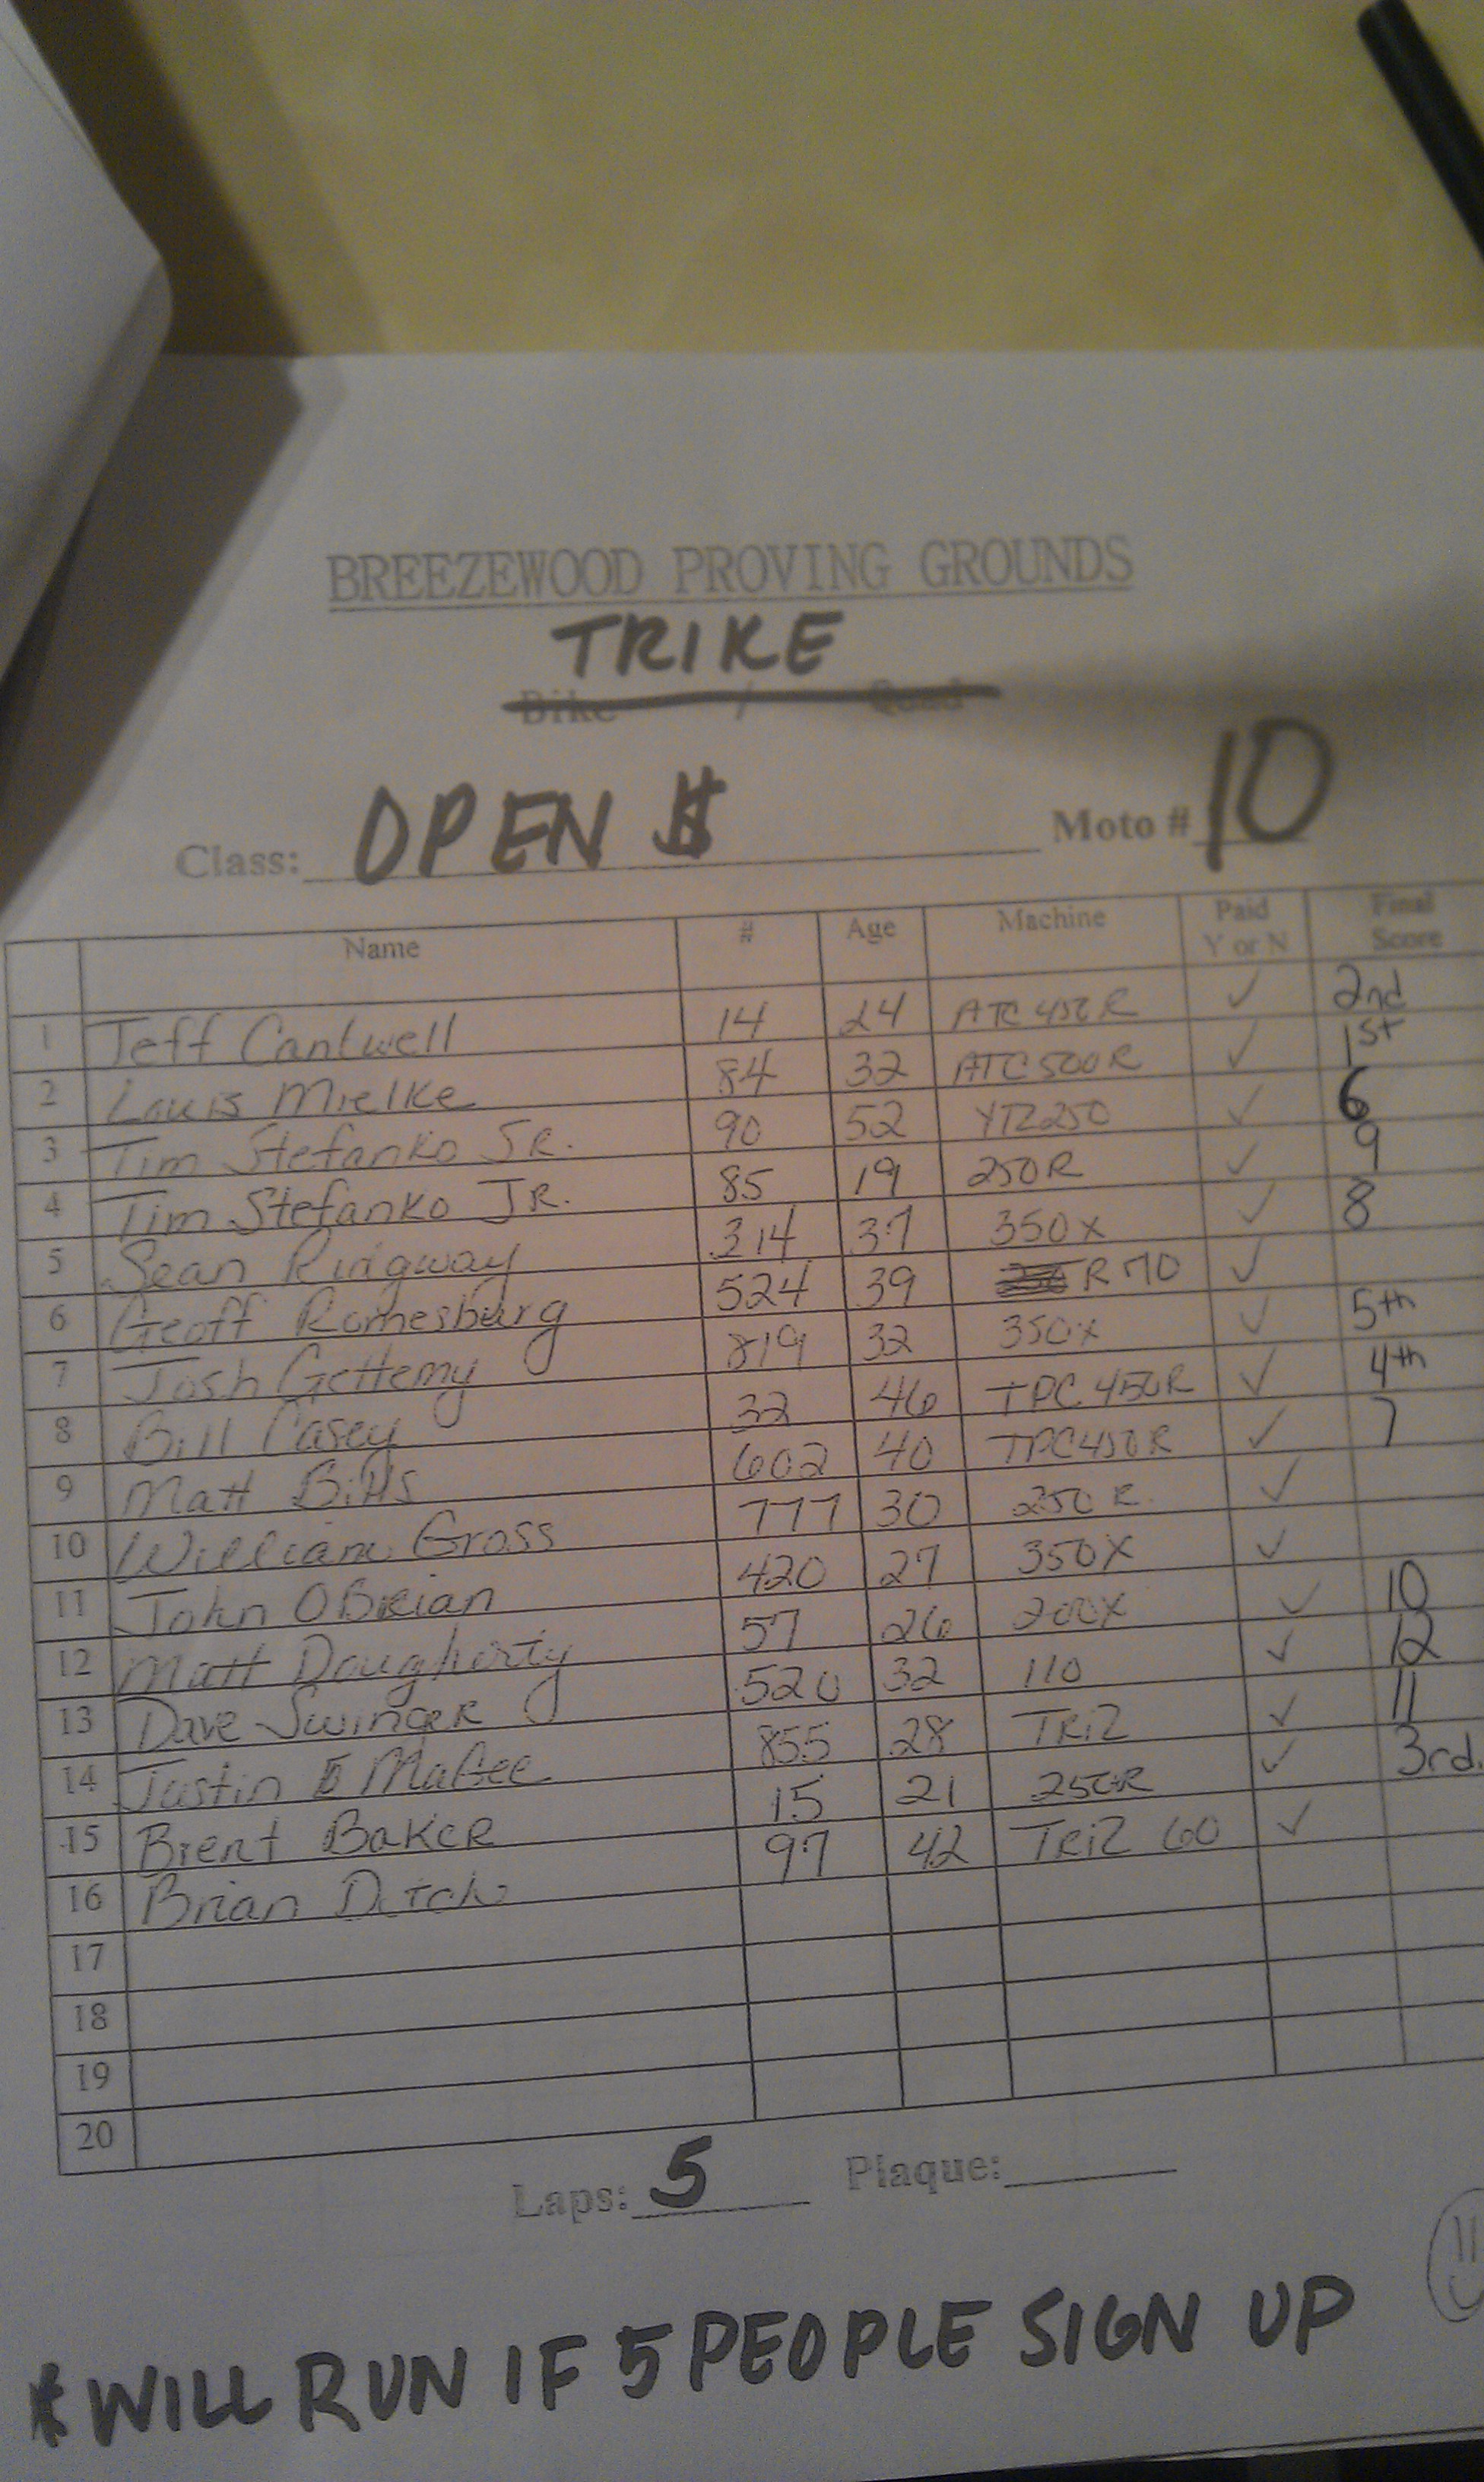 BREEZEWOOD PROVING GROUNDS
TRIKE
Bike / Quad
Class: OPEN $ Moto # 10
Name # Age Machine Paid Y or N Final Score
1 Jeff Cantwell 14 24 ATC 450R ✓ 2nd
2 Louis Mielke 84 32 ATC500R ✓ 1st
3 Tim Stefanko SR. 90 52 YTZ250 ✓ 6
4 Tim Stefanko JR. 85 19 250R ✓ 9
5 Sean Ridgway 314 37 350X ✓ 8
6 Geoff Romesburg 524 39 R70 ✓
7 Josh Gettemy 819 32 350X ✓ 5th
8 Bill Casey 32 46 TPC 450R ✓ 4th
9 Matt Bills 602 40 TPC450R ✓ 7
10 William Gross 777 30 250R ✓
11 John OBrian 420 27 350X ✓
12 Matt Dougherty 57 26 200X ✓ 10
13 Dave Swinger 520 32 110 ✓ 12
14 Justin McGee 855 28 TRiZ ✓ 11
15 Brent Baker 15 21 250R ✓ 3rd.
16 Brian 97 42 TRiZ 60 ✓
17
18
19
20
Laps: 5 Plaque:
* WILL RUN IF 5 PEOPLE SIGN UP